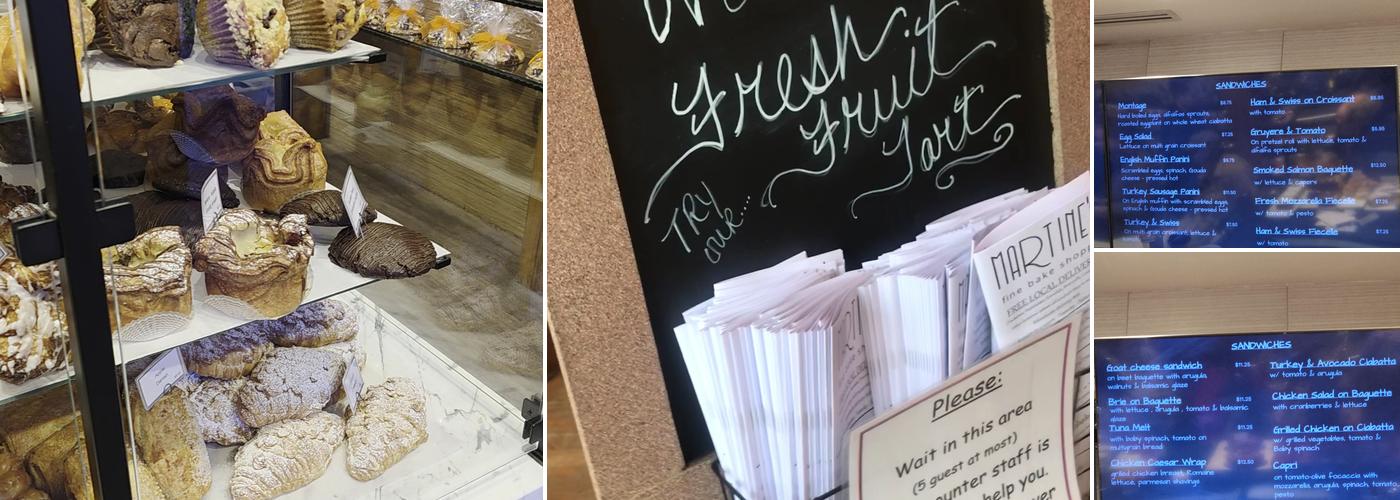 Fresh
Fruit
Tart
TRY
one...
MARTINE'
fine bake shop
FREE LOCAL DELIVER
Please:
Wait in this area
(5 guest at most)
ounter staff is
help you.
SANDWICHES
Montage $8.75
Hard boiled eggs, alfalfas sprouts,
roasted eggplant on whole wheat ciabatta
Egg Salad $7.25
Lettuce on multi grain croissant
English Muffin Panini $9.75
Scrambled eggs, spinach, Gouda
cheese - pressed hot
Turkey Sausage Panini $11.50
On English muffin with scrambled eggs,
spinach & Gouda cheese - pressed hot
Turkey & Swiss $7.50
On multi grain croissant, lettuce &
Ham & Swiss on Croissant
with tomato
Gruyere & Tomato
On pretzel roll with lettuce, tomato &
alfalfa sprouts
Smoked Salmon Baguette $12.50
w/ lettuce & capers
Fresh Mozzarella Ficelle $7.25
w/ tomato & pesto
Ham & Swiss Ficelle $7.25
w/ tomato
SANDWICHES
Goat cheese sandwich $11.25
on beet baguette with arugula,
walnuts & balsamic glaze
Brie on Baguette $11.25
with lettuce, arugula, tomato & balsamic
glaze
Tuna Melt $11.25
with baby spinach, tomato on
multigrain bread
Chicken Caesar Wrap $12.50
grilled chicken breast, Romaine
lettuce, parmesan shavings
Turkey & Avocado Ciabatta
w/ tomato & arugula
Chicken Salad on Baguette
with cranberries & lettuce
Grilled Chicken on Ciabatta
w/ grilled vegetables, tomato &
Baby spinach
Capri
on tomato-olive focaccia with
mozzarella, arugula, spinach, tomato
pesto